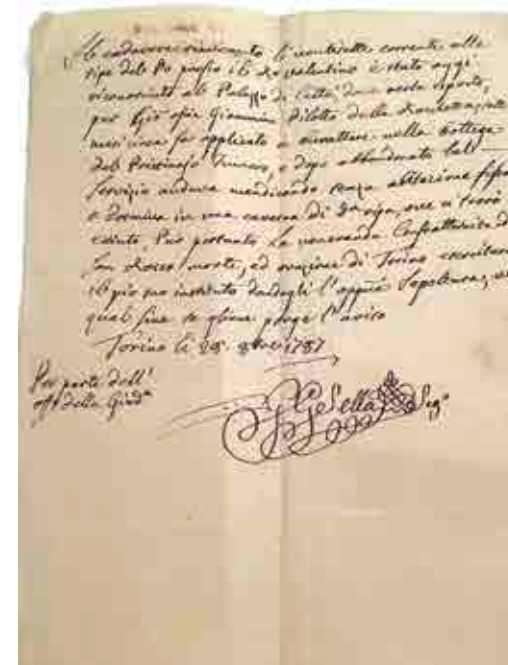 Il cadavere rinvenuto l'ventisette corrente alla
ripa del Po presso il Valentino è stato oggi
riconosciuto al Palazzo di Città, dove resta esposto,
per Giò
mesi circa fa applicato a nella bottega
del e dopo abbandonato tal
servizio andava mendicando senza abitazione fissa
e dormiva in una caverna di ove si trovò
estinto, Può pertanto la veneranda Confratternita di
San Rocco morte, ed orazione di Torino esercitare
il pio suo instituto dandogli l'oppna Sepoltura, al
qual fine se gliene porge l'aviso
Torino li 28 8bre 1787
Per parte dell'
off° della Giud.ª
Gesella Seg°